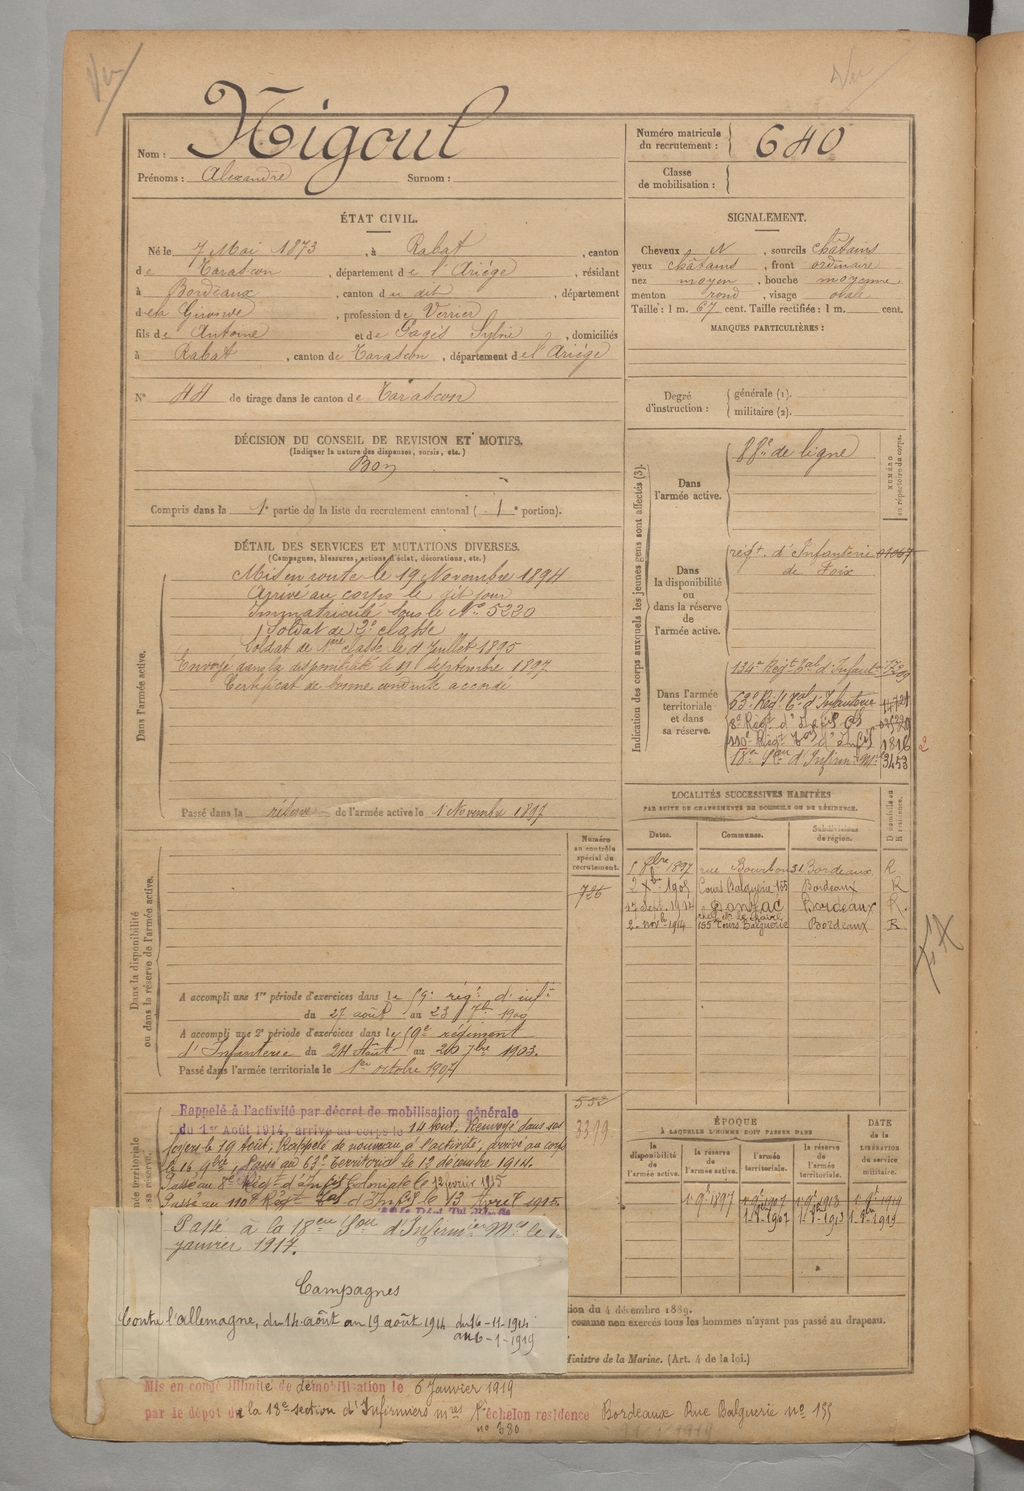 Vu
Vu
Nom : Nigoul
Prénoms : Alexandre Surnom :
Numéro matricule du recrutement : 640
Classe de mobilisation :
ÉTAT CIVIL.
Né le 7 Mai 1873, à Rabat, canton
de Tarascon, département de l'Ariège, résidant
à Bordeaux, canton du dit, département
de la Gironde, profession de Verrier
fils de Antoine et de Pagès Sylvie, domiciliés
à Rabat, canton de Tarascon, département de l'Ariège
N° 44 de tirage dans le canton de Tarascon
SIGNALEMENT.
Cheveux N, sourcils châtains
yeux châtains, front ordinaire
nez moyen, bouche moyenne
menton rond, visage ovale
Taille : 1 m. 67 cent. Taille rectifiée : 1 m. cent.
MARQUES PARTICULIÈRES :
Degré d'instruction : générale (1).
militaire (2).
DÉCISION DU CONSEIL DE REVISION ET MOTIFS.
(Indiquer la nature des dispenses, sursis, etc.)
Bon
Compris dans la 1e partie de la liste du recrutement cantonal (1e portion).
DÉTAIL DES SERVICES ET MUTATIONS DIVERSES.
(Campagnes, blessures, actions d'éclat, décorations, etc.)
Dans l'armée active.
Mis en route le 19 Novembre 1894
Arrivé au corps le dit jour
Immatriculé sous le No 5230
Soldat de 2e classe
Soldat de 1ère classe le 4 Juillet 1895
Envoyé dans la disponibilité le 19 Septembre 1897
Certificat de bonne conduite accordé
Passé dans la réserve de l'armée active le 1 Novembre 1897
Indication des corps auxquels les jeunes gens sont affectés (3).
NUMÉRO au répertoire du corps.
Dans l'armée active.
88e de ligne
Dans la disponibilité ou dans la réserve de l'armée active.
régt. d'Infanterie
de Foix
Dans l'armée territoriale et dans sa réserve.
134e Régt Tal d'Infant
63e Régt Tal d'Infanterie
8e Régt d'Infie Cle
110e Régt Tal d'Infie 1816
18e Son d'Infirm. Mres 3453
2
LOCALITÉS SUCCESSIVES HABITÉES
PAR SUITE DE CHANGEMENTS DE DOMICILE OU DE RÉSIDENCE.
Dates. Communes. Subdivisions de région. D domicile ou R résidence.
1897 rue Bourbon 31 Bordeaux R
2 Xbre 1905 Cours Balguerie 155 Bordeaux R
17 Sept. 1914 Bordeaux R.
2 novbre 1914 155 Cours Balguerie Bordeaux R
Numéro au contrôle spécial du recrutement.
726
Dans la disponibilité ou dans la réserve de l'armée active.
A accompli une 1re période d'exercices dans le 59e régt d'infie
du 27 août au 23 7bre 1900
A accompli une 2e période d'exercices dans le 59e régiment
d'Infanterie du 24 Août au 20 7bre 1903.
Passé dans l'armée territoriale le 1er octobre 1907
552
3319
Rappelé à l'activité par décret de mobilisation générale
du 1er Août 1914, arrivé au corps le 14 Août. Renvoyé dans ses
foyers le 19 Août. Rappelé de nouveau à l'activité, arrivé au corps
le 16 9bre. Passé au 63e Territorial le 12 décembre 1914.
Passé au 8e Régt d'Infie Coloniale le 12 février 1915
Passé au 110e Régt Tal d'Infie le 13 Avril 1915.
Passé à la 18eme Son d'Infirmiers Mres le 1er
janvier 1917.
Campagnes
Contre l'allemagne, du 14 août au 19 août 1914 du 16-11-1914
au 6-1-1919
ÉPOQUE
À LAQUELLE L'HOMME DOIT PASSER DANS
DATE de la LIBÉRATION du service militaire.
la disponibilité de l'armée active. la réserve de l'armée active. l'armée territoriale. la réserve de l'armée territoriale.
1 9e 1897 1 9e 1907 1 9e 1913 1 9e 1919
ion du 4 décembre 1889.
comme non exercés tous les hommes n'ayant pas passé au drapeau.
Ministre de la Marine. (Art. 4 de la loi.)
Mis en congé illimité de démobilisation le 6 Janvier 1919
par le dépôt de la 18e section d'Infirmiers mres échelon residence Bordeaux Rue Balguerie no 155
no 380